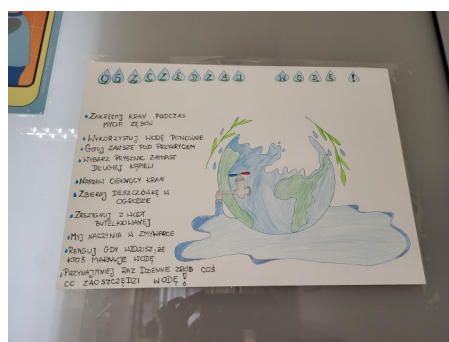 OSZCZĘDZAJ WODĘ!
• ZAKRĘCAJ KRAN PODCZAS
MYCIA ZĘBÓW
• WYKORZYSTUJ WODĘ PONOWNIE
• GOTUJ ZAWSZE POD PRZYKRYCIEM
• WYBIERZ PRYSZNIC ZAMIAST
DŁUGIEJ KĄPIELI
• NAPRAW CIEKNĄCY KRAN
• ZBIERAJ DESZCZÓWKĘ W
OGRODZIE
• ZREZYGNUJ Z WODY
BUTELKOWANEJ
• MYJ NACZYNIA W ZMYWARCE
• REAGUJ GDY WIDZISZ, ŻE
KTOŚ MARNUJE WODĘ
PRZYNAJMNIEJ RAZ DZIENNIE ZRÓB COŚ
CO ZAOSZCZĘDZI WODĘ!